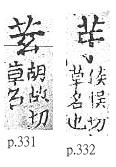 胡故切
草名
p.331
侯悮切
草名也
p.332